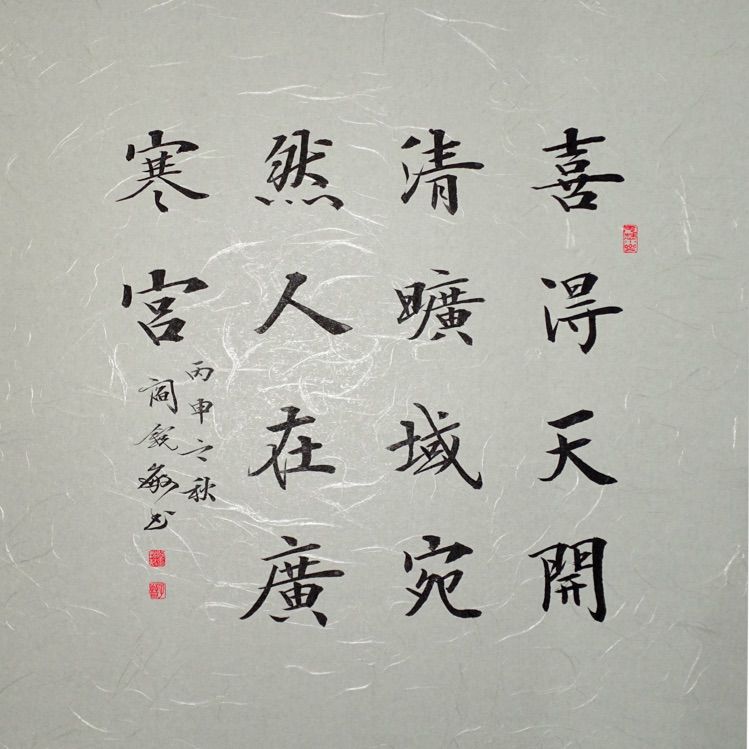 喜得天開
清曠域宛
然人在廣
寒宮
丙申之秋
阎銳敏书